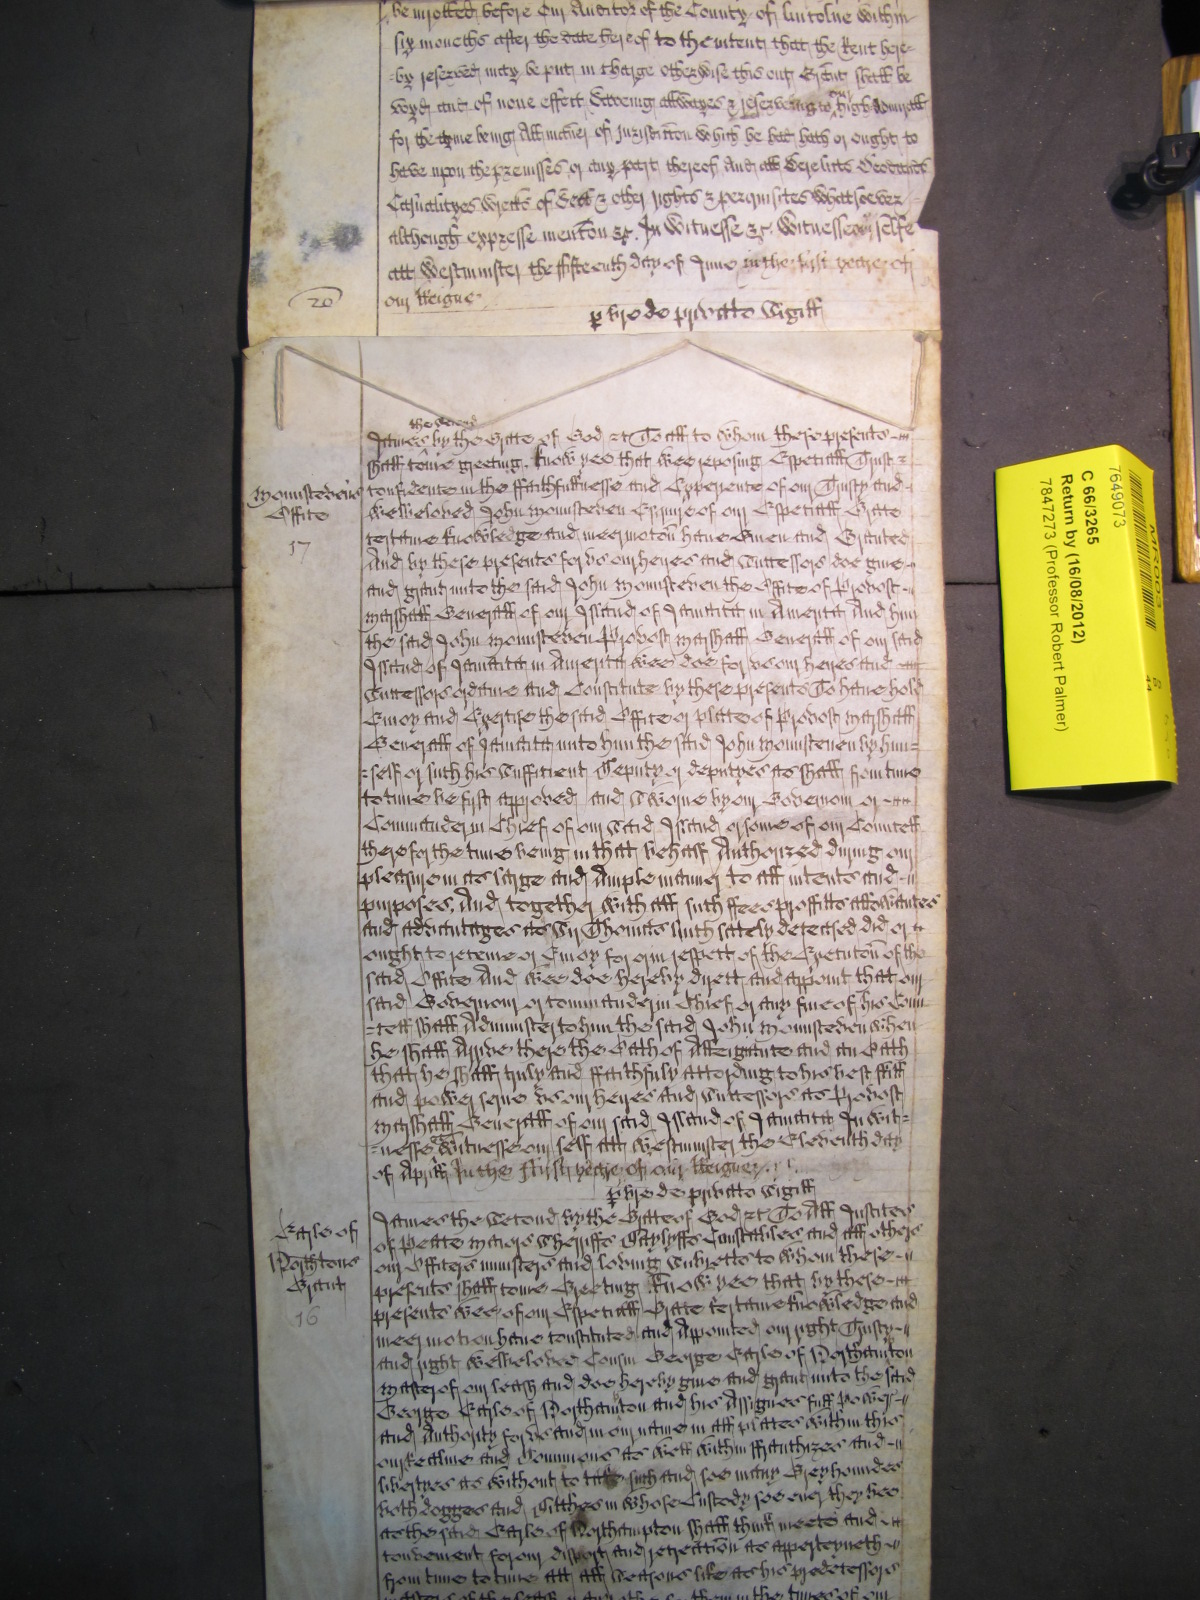 be inrolled before Our Auditor of the County of Lincolne within
six moneths after the date hereof to the intent that the Rent here=
=by reserved may be put in charge otherwise this our Grant shall be
voyd and of none effect Saveing allwayes & reserveing to high Admirall
for the tyme being All manner of Jurisdiccon which he had hath or ought to
have upon the premisses or any part thereof And all Derelicts Deodands
Casualtyes Wrecks of Sea & other rights & perquisites whatsoever
although expresse mencon &c. In Witnesse &c. Witnesse our selfe
att Westminster the fifteenth day of June in the first yeare of
our Reigne
20
p bre de privato Sigill
the Second
James by the Grace of God &c To all to whom these presents
shall come greeting. Know yee that wee reposing Especiall Trust &
Mounstevens Office
17
confidence in the ffaithfullnesse and Experience of our Trusty and
welbeloved John Mounsteven Esquire of our Especiall Grace
certaine knowledge and meer mocon have Given and Granted
And by these presents for us our heires and Successors doe give
and grant unto the said John Mounsteven the Office of Provost
Marshall Generall of our Island of Jamaica in America And him
the said John Mounsteven Provost Marshall Generall of our said
Island of Jamaica in America wee doe for us our heires and
Successors ordaine and Constitute by these presents To have hold
Enjoy and Exercise the said Office or place of Provost Marshall
Generall of Jamaica unto him the said John Mounsteven by him=
=self or such his sufficient Deputy or deputyes as shall from time
to time be first approved and Sworne by our Governour or
Commander in Chief of our said Island or some of our Councell
there for the time being in that behalf Authorized during our
pleasure in as large and Ample manner to all intents and
purposes. And together with all such ffees proffitts allowances
and advantages as Sir Thomas Linch lately deceased did or
ought to receive or Enjoy for or in respect of the Execucon of the
said Office And wee doe hereby direct and appoint that our
said Governour or commander in Chief or any five of his Coun
=cell shall Administer to him the said John Mounsteven when
he shall Arrive there the Oath of Alleigiance and an Oath
that he shall truly and ffaithfuly according to his best skill
and power serve us our heires and Successors as Provost
Marshall Generall of our said Island of Jamaica In wit=
=nesse &c Witnesse our self att Westminster the Eleventh day
of Aprill In the First yeare of our Reigne
p bre de privato Sigill
Earle of Northtons Grant
16
James the Second by the Grace of God &c To All Justices
of peace Maiors Sherriffs Baylyffs Constables and all others
our Officers ministers and loving Subiects to whom these
presents shall come Greeting Know yee that by these
presents wee of our Especiall Grace certaine knowledge and
meer motion have constituted and Appointed our right Trusty
and right welbeloved Cousin George Earle of Northamton
Master of our leash and doe hereby give and grant unto the said
George Earle of Northamton and his Assignes full power
and Authority for us and in our name in all places within this
our Realme and Dominions as well within ffranchizes and
libertyes as without to take such and soe many Greyhoundes
both dogges and Bitches in whose Custody soe ever they bee
as the said Earle of Northampton shall think meete and
convenient for our disport and recreation as apperteyneth
from time to time att all Seasons like as his predecessors
C 66/3265
7649073
Return by (16/08/2012)
7847273 (Professor Robert Palmer)